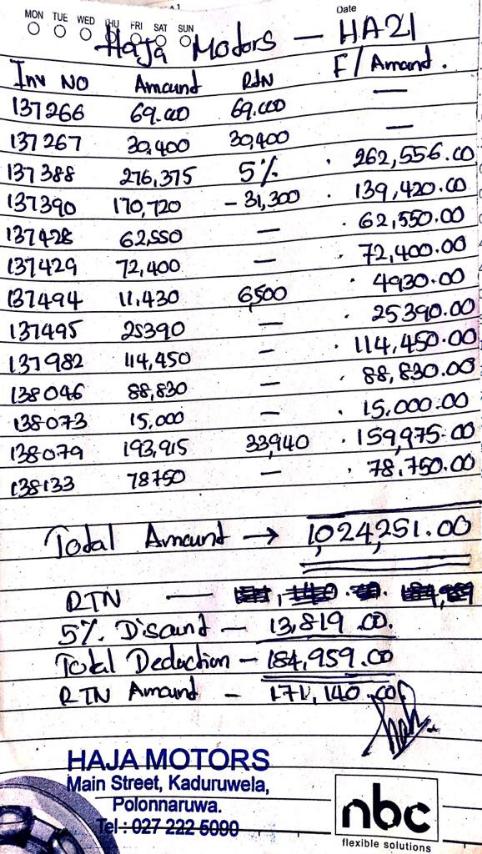 MON TUE WED THU FRI SAT SUN
Date
Haja Motors - HA21
Inv NO Amaund RtN F/Amand.
137266 69.000 69.000 —
137267 30,400 30,400 —
137388 276,375 5% . 262,556.00
137390 170,720 - 31,300 . 139,420.00
137428 62,550 — . 62,550.00
137429 72,400 — . 72,400.00
137494 11,430 6,500 . 4930.00
137495 25390 — . 25390.00
137982 114,450 — . 114,450.00
138046 88,830 — . 88,830.00
138073 15,000 — . 15,000.00
138079 193,915 33,940 . 159,975.00
138133 78750 — . 78,750.00
Total Amaund → 1,024,251.00
RTN —
5% Discaund - 13,819.00.
Total Deduction - 184,959.00
RTN Amaund - 171,140.00
HAJA MOTORS
Main Street, Kaduruwela,
Polonnaruwa.
Tel : 027 222 5090
nbc
flexible solutions